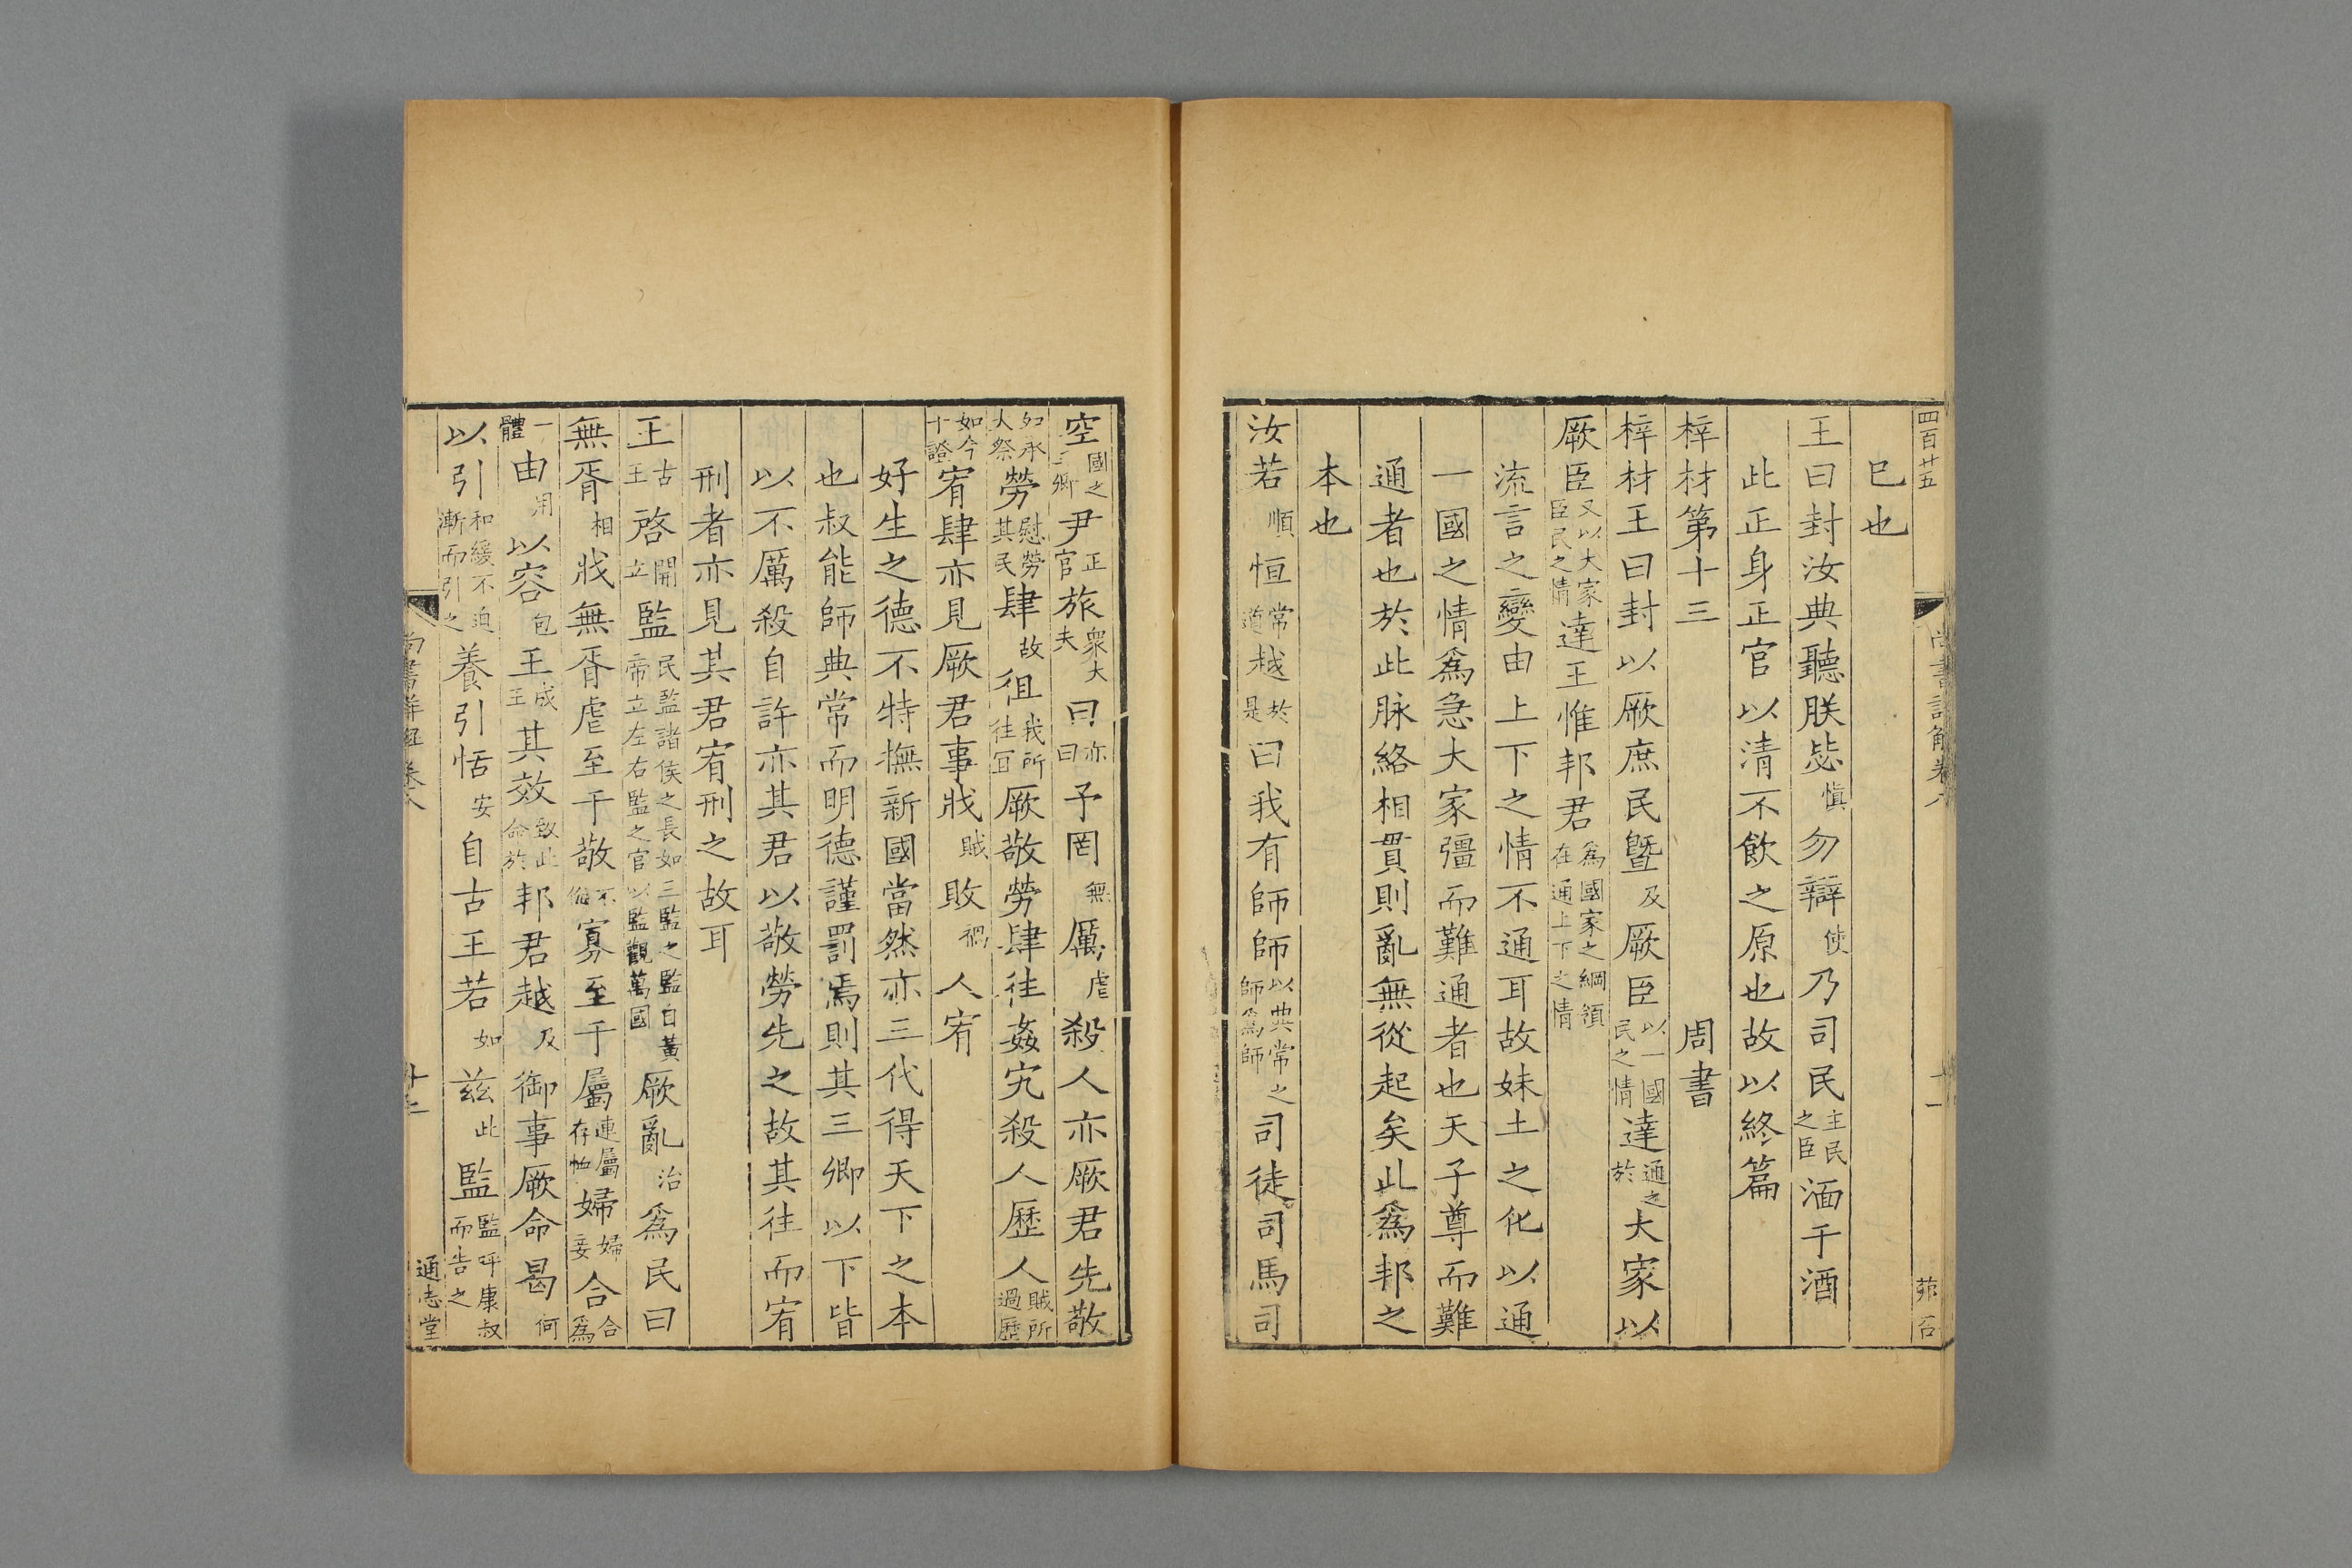 四百廿五
尚書詳解卷八
十一
已也
王曰封汝典聽朕毖慎勿辯使乃司民主民之臣湎于酒
此正身正官以清不飲之原也故以終篇
梓材第十三 周書
梓材王曰封以厥庶民暨及厥臣以一國民之情達通之於大家以
厥臣又以大家臣民之情達王惟邦君為國家之綱領在通上下之情
流言之變由上下之情不通耳故妹土之化以通
一國之情爲急大家彊而難通者也天子尊而難
通者也於此脉絡相貫則亂無從起矣此爲邦之
本也
汝若順恒常道越於是曰我有師師以典常之師為師司徒司馬司
空國之三卿尹正官旅衆大夫曰亦曰予罔無厲虐殺人亦厥君先敬
如承大祭勞慰勞其民肆故徂我所往厥敬勞肆往姦宄殺人歷人賊所過歷
如今十證宥肆亦見厥君事戕賊敗禍人宥
好生之德不特撫新國當然亦三代得天下之本
也叔能師典常而明德謹罰焉則其三卿以下皆
以不厲殺自許亦其君以敬勞先之故其往而宥
刑者亦見其君宥刑之故耳
王古王啓開立監民監諸侯之長如三監之監自黃帝立左右監之官以監觀萬國厥亂治爲民曰
無胥相戕無胥虐至于敬不侮寡至于屬連屬存恤婦婦妾合合爲
一體由用以容包王成王其效致此命於邦君越及御事厥命曷何
以引和緩不迫漸而引之養引恬安自古王若如茲此監監呼康叔而告之
尚書詳解卷八
通志堂